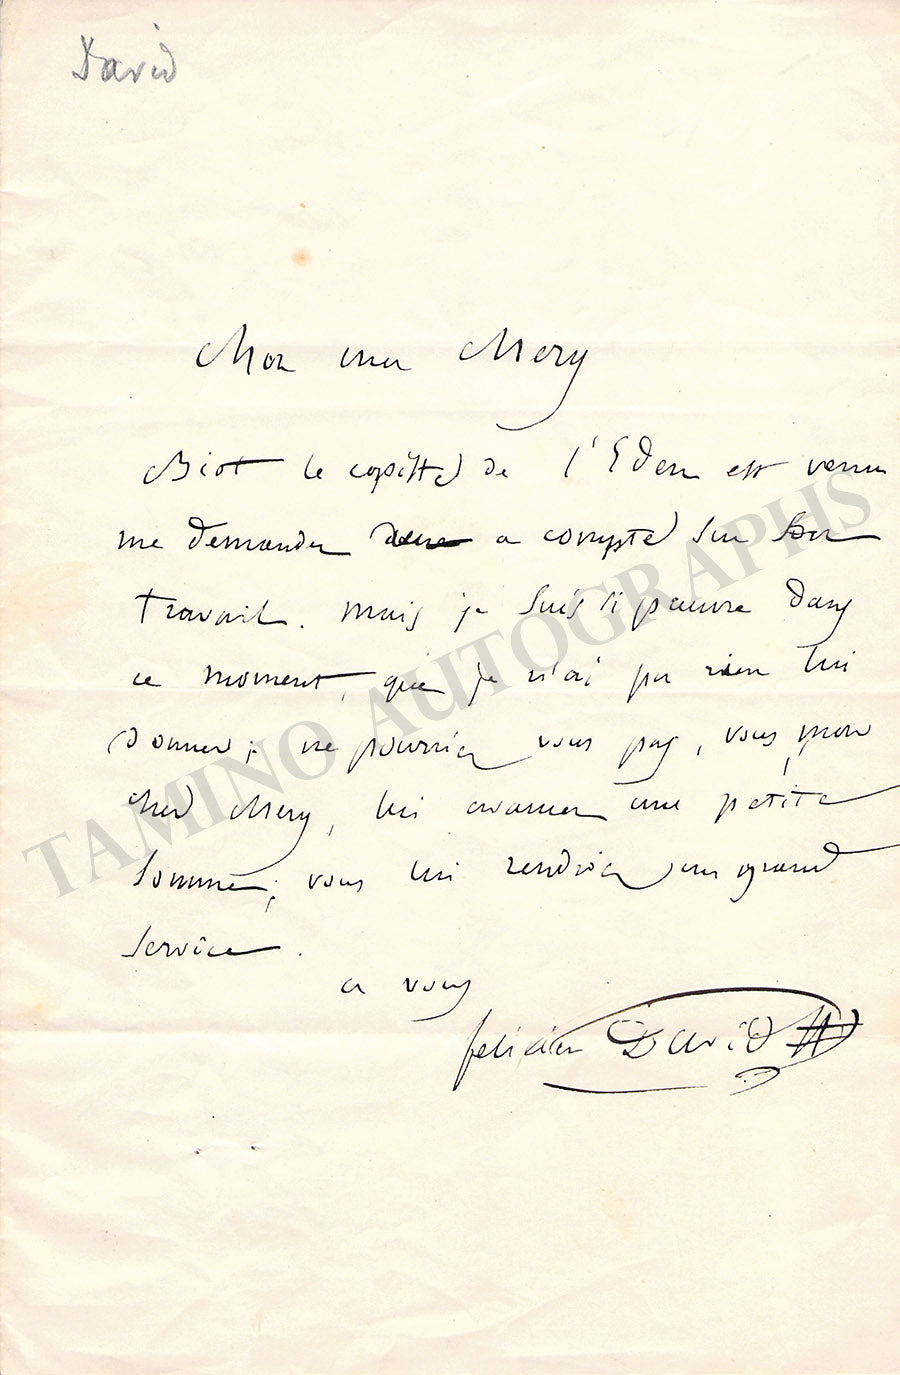 David
Mon cher Mery
Biot le copiste de l'Eden est venu
me demander a compte sur son
travail. mais je suis si pauvre dans
ce moment, que je n'ai pu rien lui
donner; ne pourriez vous pas, vous, mon
cher Mery, lui avancer une petite
somme; vous lui rendriez un grand
service.
a vous
felicien David
TAMINO AUTOGRAPHS